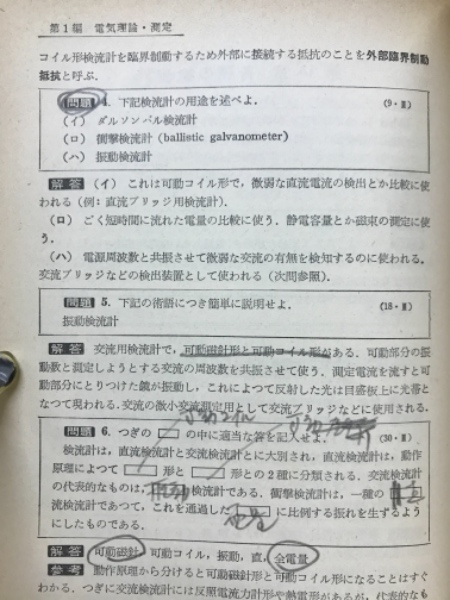 第1編 電気理論・測定
コイル形検流計を臨界制動するため外部に接続する抵抗のことを外部臨界制動
抵抗と呼ぶ．
問題 4. 下記検流計の用途を述べよ． (9・Ⅲ)
(イ) ダルソンバル検流計
(ロ) 衝撃検流計 (ballistic galvanometer)
(ハ) 振動検流計
解答 (イ) これは可動コイル形で，微弱な直流電流の検出とか比較に使
われる (例：直流ブリッジ用検流計)．
(ロ) ごく短時間に流れた電量の比較に使う．静電容量とか磁束の測定に使
う．
(ハ) 電源周波数と共振させて微弱な交流の有無を検知するのに使われる．
交流ブリッジなどの検出装置として使われる (次問参照)．
問題 5. 下記の術語につき簡単に説明せよ． (18・Ⅲ)
振動検流計
解答 交流用検流計で，可動磁針形と可動コイル形がある．可動部分の振
動数と測定しようとする交流の周波数を共振させて使う．測定電流を流すと可
動部分にとりつけた鏡が振動し，これによつて反射した光は目盛板上に光帯と
なつて現われる．交流の微小交流測定用として交流ブリッジなどに使用される．
可動コイル
問題 6. つぎの □ の中に適当な答を記入せよ． (30・Ⅲ)
検流計は，直流検流計と交流検流計とに大別され，直流検流計は，動作
原理によつて □ 形と □ 形との2種に分類される．交流検流計
の代表的なものは， 検流計である．衝撃検流計は，一種の
流検流計であつて，これを通過した □ に比例する振れを生ずるよう
にしたものである．
解答 可動磁針，可動コイル，振動，直，全電量
参考 動作原理から分けると可動磁針形と可動コイル形になることはすぐ
わかる．つぎに交流検流計には反照電流力計形や熱電形があるが，代表的なも